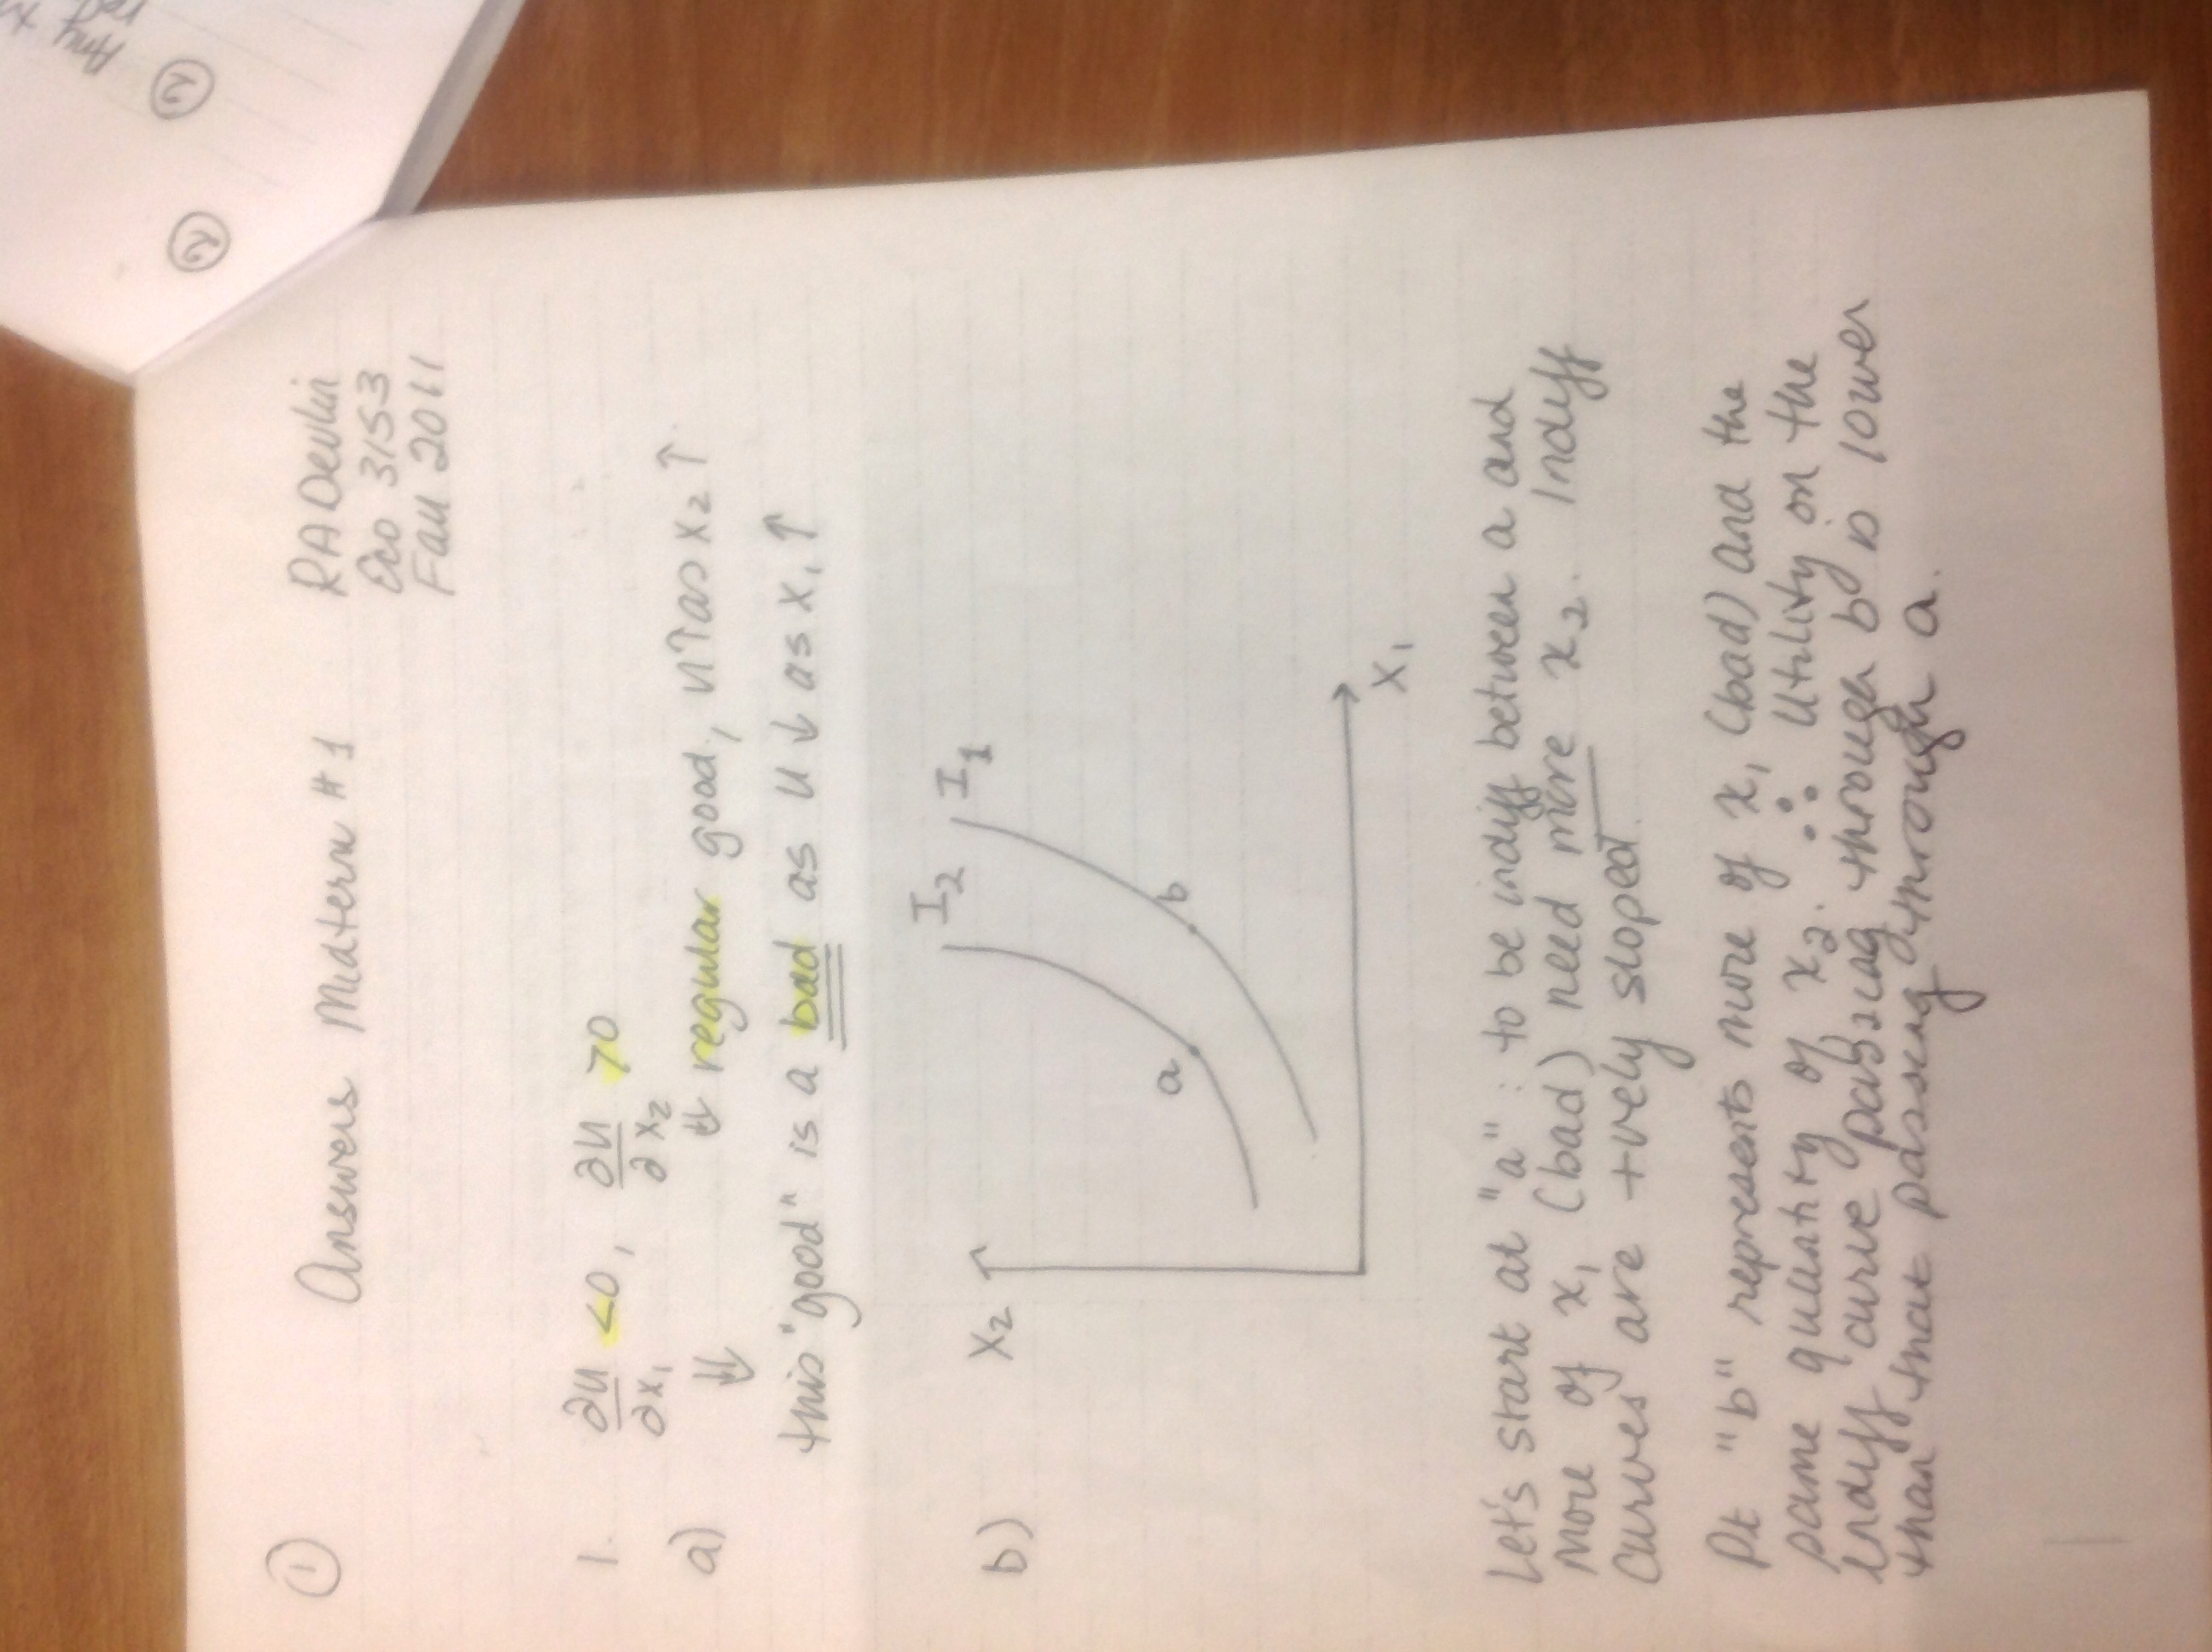 ①
Answers Midterm #1
RADevlin
Eco 3153
Fall 2011
1. ∂U/∂x₁ <0, ∂U/∂x₂ >0
a) ⇓ ⇓ regular good, U↑ as x₂↑.
this "good" is a bad as U↓ as x₁↑
b)
X₂
I₂
I₁
a
b
X₁
Let's start at "a": to be indiff between a and
more of x₁ (bad) need more x₂. Indiff
curves are +vely sloped.
Pt "b" represents more of x₁ (bad) and the
same quantity of x₂. ∴ Utility on the
indiff curve passing through b is lower
than that passing through a.
②
②
Any